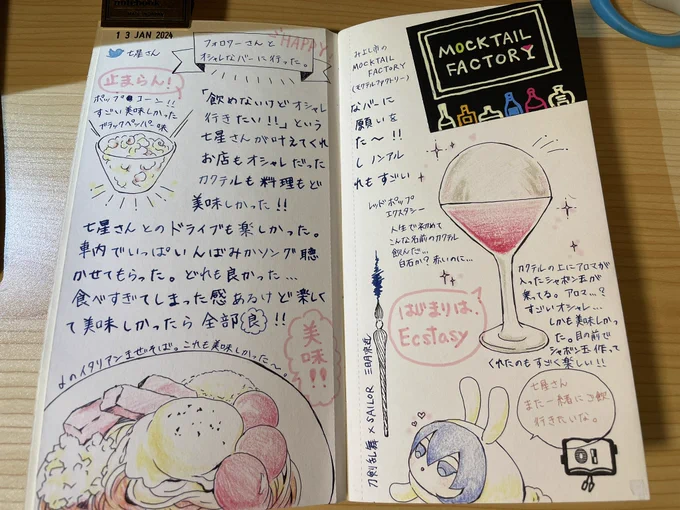 13 JAN 2024
七星さん
フォロワーさんと
オシャレなバーに行った。
HAPPY
止まらん!
ポップコーン!!
すごい美味しかった
ブラックペッパー味
「飲めないけどオシャレ
行きたい!!」という
七星さんが叶えてくれ
お店もオシャレだった
カクテルも料理もど
美味しかった!!
七星さんとのドライブも楽しかった。
車内でいっぱいんばみかソング聴
かせてもらった。どれも良かった…
食べすぎてしまった感あるけど楽しく
て美味しかったら全部良!!
美味!!
よのイタリアンまぜそば。これも美味しかった〜。
みよし市の
MOCKTAIL
FACTORY
(モクテルファクトリー)
MOCKTAIL
FACTORY
なバーに
願いを
た〜!!
しノンアル
れもすごい
レッドポップ
エクスタシー
人生で初めて
こんな名前のカクテル
飲んだ…
白石か?赤いのに…
はじまりは、
Ecstasy
カクテルの上にアロマが
入ったシャボン玉が
乗ってる。アロマ…?
すごいオシャレ…
しかも美味しかっ
た。目の前で
シャボン玉作って
くれたのもすごく楽しい!!
刀剣乱舞×SAILOR 三日月宗近
七星さん
また一緒にご飯
行きたいな。